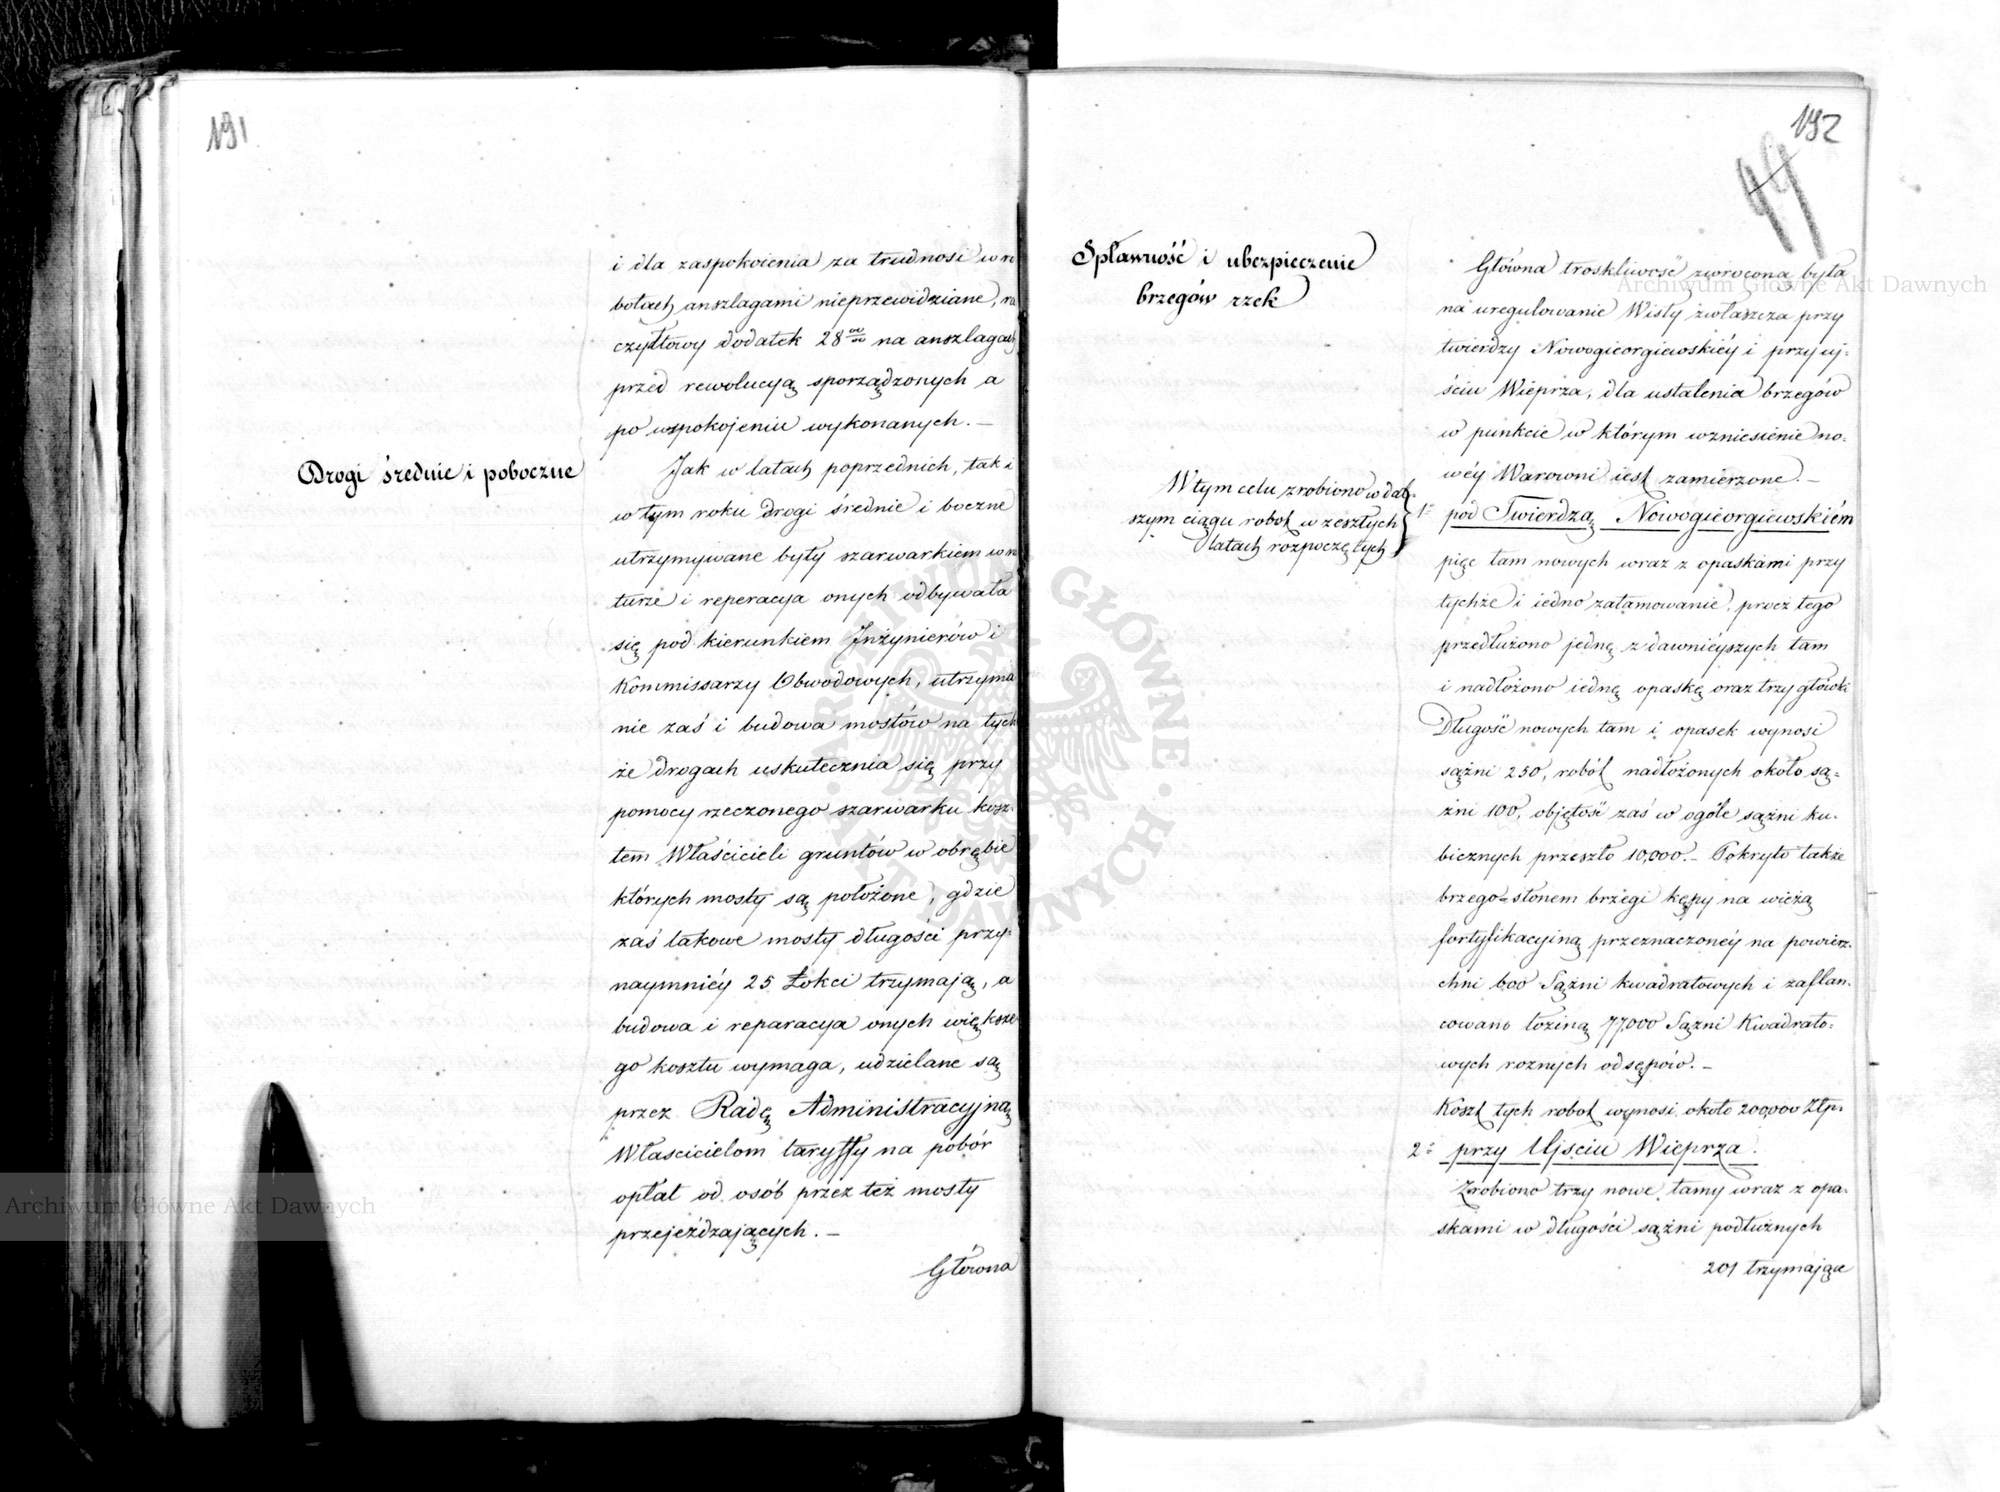 191
i dla zaspokoienia za trudnosi w ro
botach anszlagami nieprzewidziane, ry
czałtowy dodatek 28 na anszlagach
przed rewolucyą sporządzonych a
po uspokojeniu wykonanych. —
Drogi średnie i poboczne
Jak w latach poprzednich, tak i
w tym roku drogi średnie i boczne
utrzymywane były szarwarkiem w na
turze i reperacya onych odbywała
się pod kierunkiem Inżynierów i
Kommissarzy Obwodowych, utrzyma
nie zaś i budowa mostów na tych
że drogach uskutecznia się przy
pomocy rzeczonego szarwarku kosz-
tem Właścicieli gruntów w obrębie
których mosty są położone, gdzie
zaś takowe mosty długości przy-
naymniéy 25 Łokci trzymają, a
budowa i reparacya onych większe
go kosztu wymaga, udzielane są
przez Radę Administracyjną
Właścicielom taryffy na pobór
opłat od osób przez też mosty
przejeżdzających. —
Główna
192
44
Spławność i ubezpieczenie
brzegów rzek
Główna troskliwość zwroconą była
na uregulowanie Wisły zwłaszcza przy
twierdzy Nowogieorgiewskiéy i przy uj-
ściu Wieprza, dla ustalenia brzegów
w punkcie w którym wzniesienie no-
wéy Warowni iest zamierzone. —
W tym celu zrobiono w dal-
szym ciągu robot w zeszłych
latach rozpoczętych
1° pod Twierdzą Nowogieorgiewskiém
pięc tam nowych wraz z opaskami przy
tychże i iedno zatamowanie, przez tego
przedłużono jedną z dawniéyszych tam
i nadłożono iedną opaskę oraz trzy główki
Długość nowych tam i opasek wynosi
sążni 250, robót nadłożonych około są-
żni 100, objętość zaś w ogóle sążni ku-
bicznych przeszło 10,000. — Pokryto także
brzego-słonem brzegi kępy na wieżą
fortyfikacyiną przeznaczonéy na powierz-
chni 600 Sążni kwadratowych i zaflan-
cowano łoziną 77,000 Sążni Kwadrato-
wych roznych odsępów. —
Koszt tych robot wynosi około 200,000 Złp.
2° przy Ujściu Wieprza.
Zrobiono trzy nowe tamy wraz z opa-
skami w długości sążni podłużnych
201 trzymające
Archiwum Główne Akt Dawnych
Archiwum Główne Akt Dawnych
ARCHIWUM GŁÓWNE AKT DAWNYCH